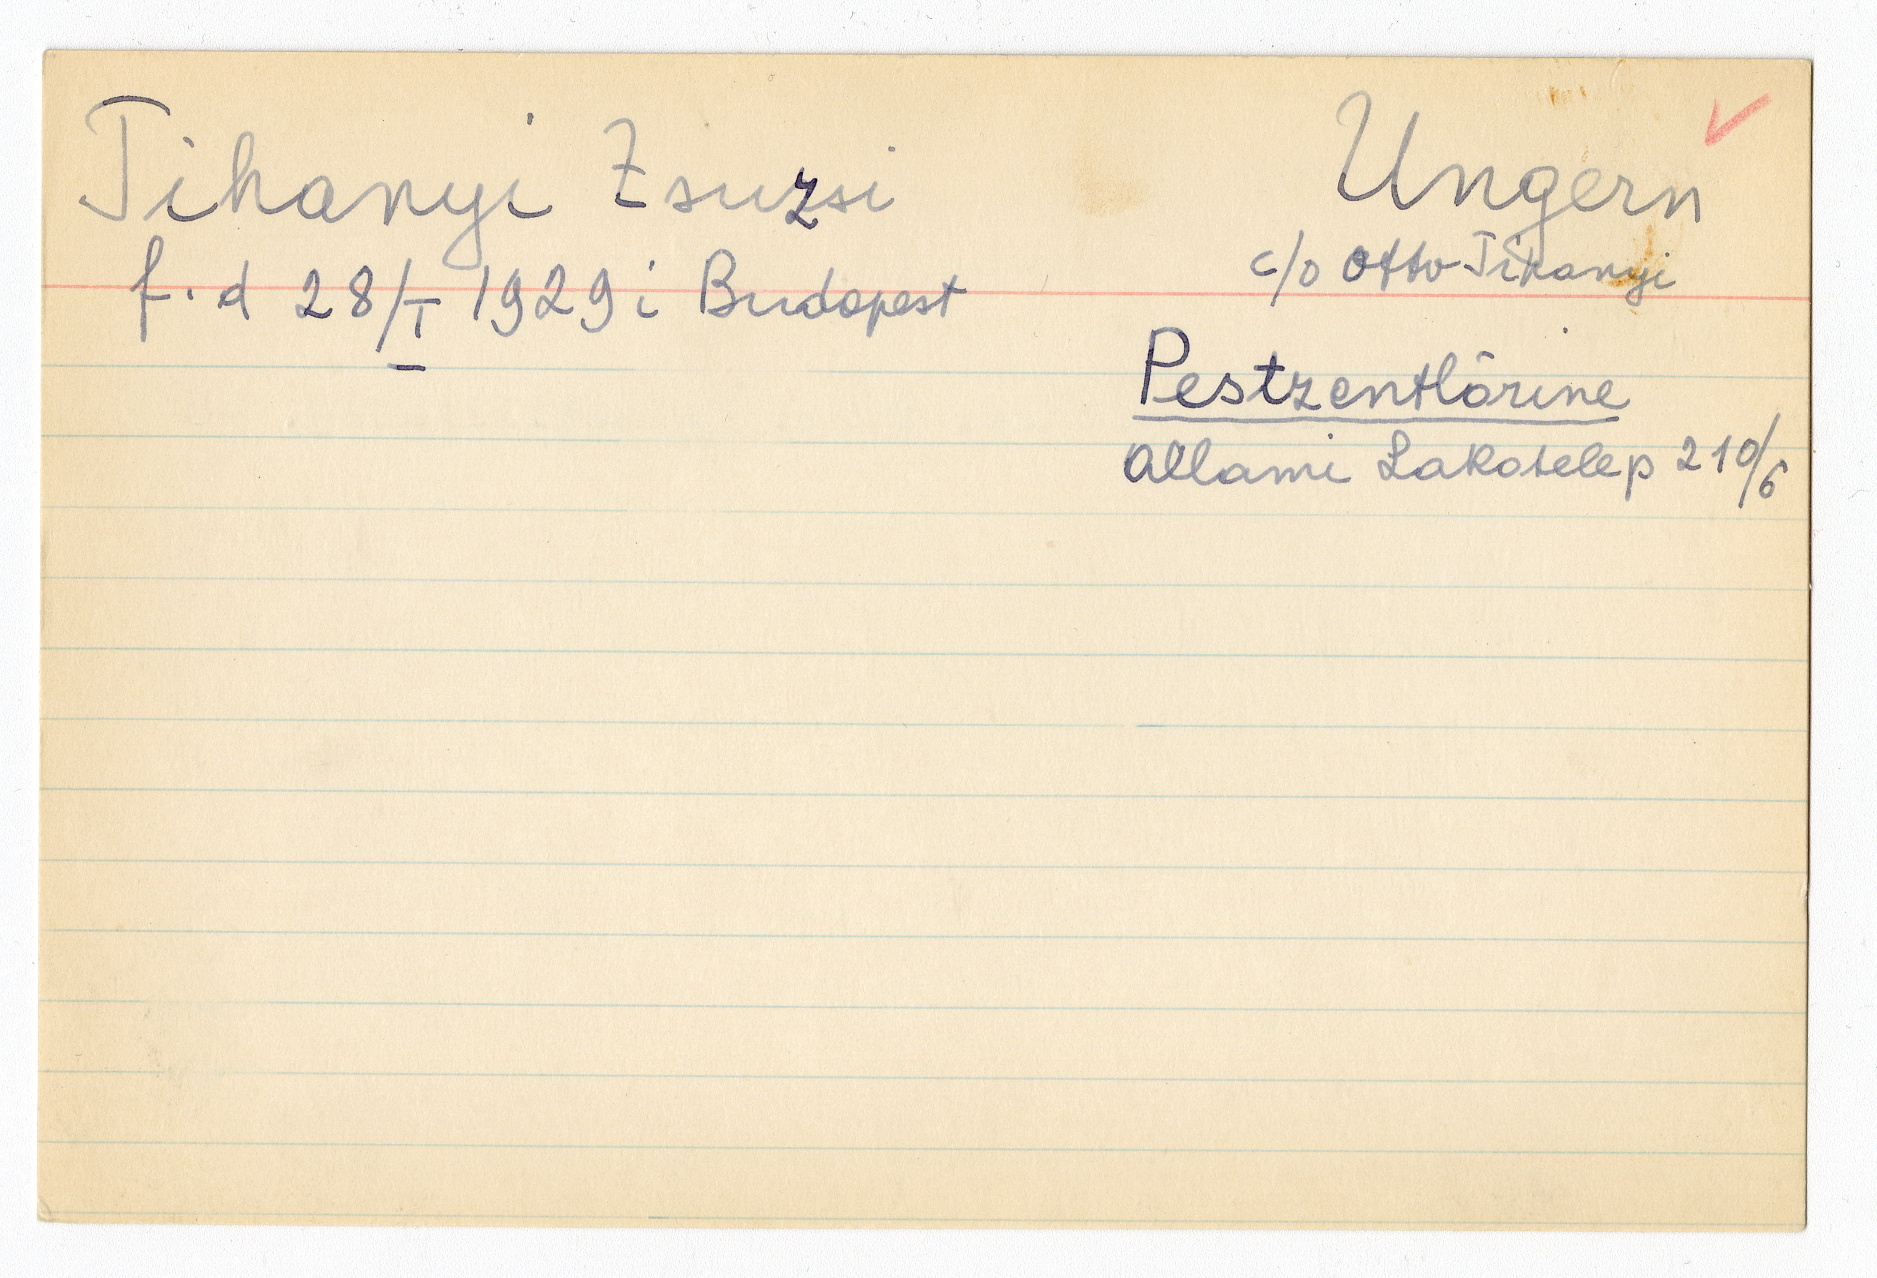 Tihanyi Zsuzsi
f. d 28/I 1929 i Budapest
Ungern
c/o Otto Tihanyi
Pestzentlörinc
Allami Lakotelep 210/6